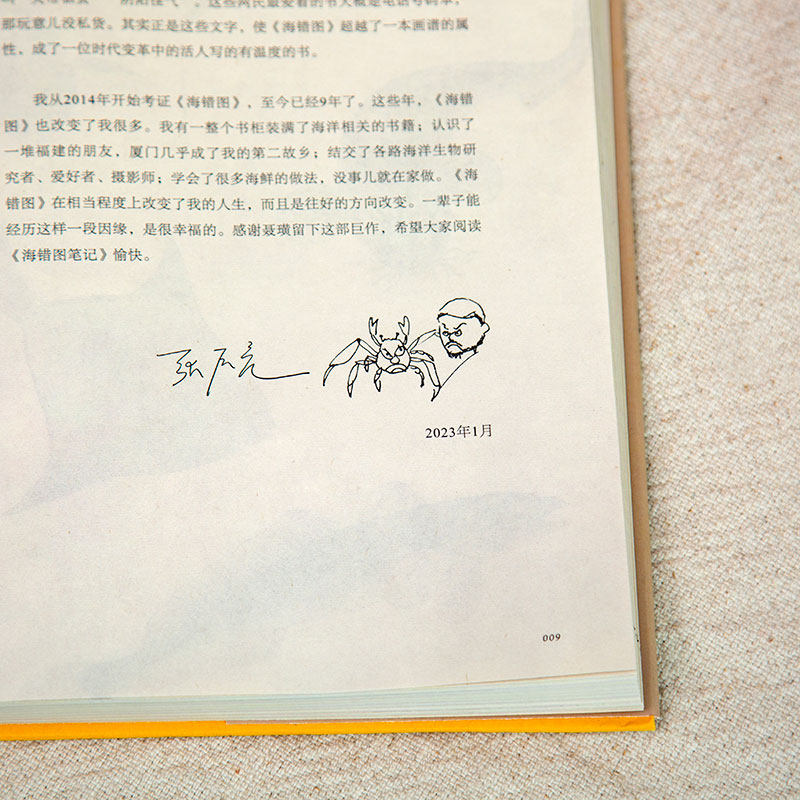 些网民最爱看的书大概是电话号码本，
那玩意儿没私货。其实正是这些文字，使《海错图》超越了一本画谱的属
性，成了一位时代变革中的活人写的有温度的书。
我从2014年开始考证《海错图》，至今已经9年了。这些年，《海错
图》也改变了我很多。我有一整个书柜装满了海洋相关的书籍；认识了
一堆福建的朋友，厦门几乎成了我的第二故乡；结交了各路海洋生物研
究者、爱好者、摄影师；学会了很多海鲜的做法，没事儿就在家做。《海
错图》在相当程度上改变了我的人生，而且是往好的方向改变。一辈子能
经历这样一段因缘，是很幸福的。感谢聂璜留下这部巨作，希望大家阅读
《海错图笔记》愉快。
张辰亮
2023年1月
009